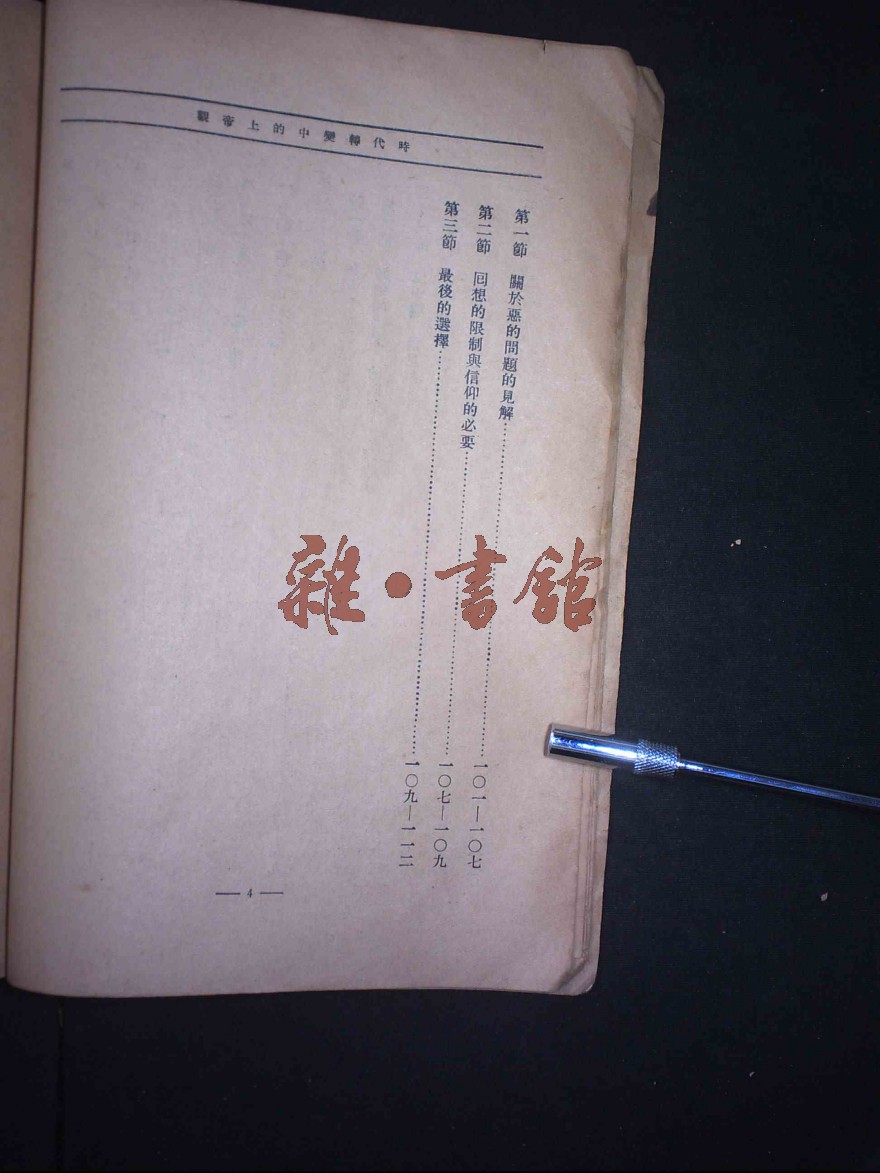 時代轉變中的上帝觀
第一節 關於惡的問題的見解……一〇一—一〇七
第二節 回想的限制與信仰的必要……一〇七—一〇九
第三節 最後的選擇……一〇九—一一二
— 4 —
雜·書館